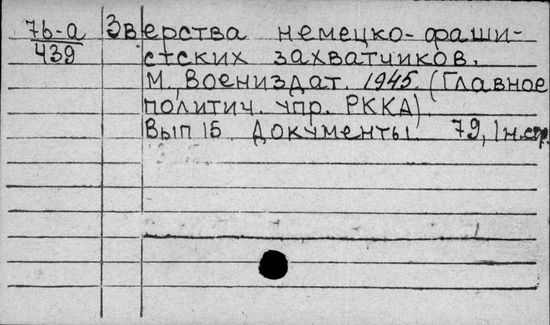 7b-a Зверства немецко-фаши-
439 стских захватчиков.
М., Воениздат. 1945. (Главное
политич. упр. РККА).
Вып 15. Документы. 79, 1 н.стр.